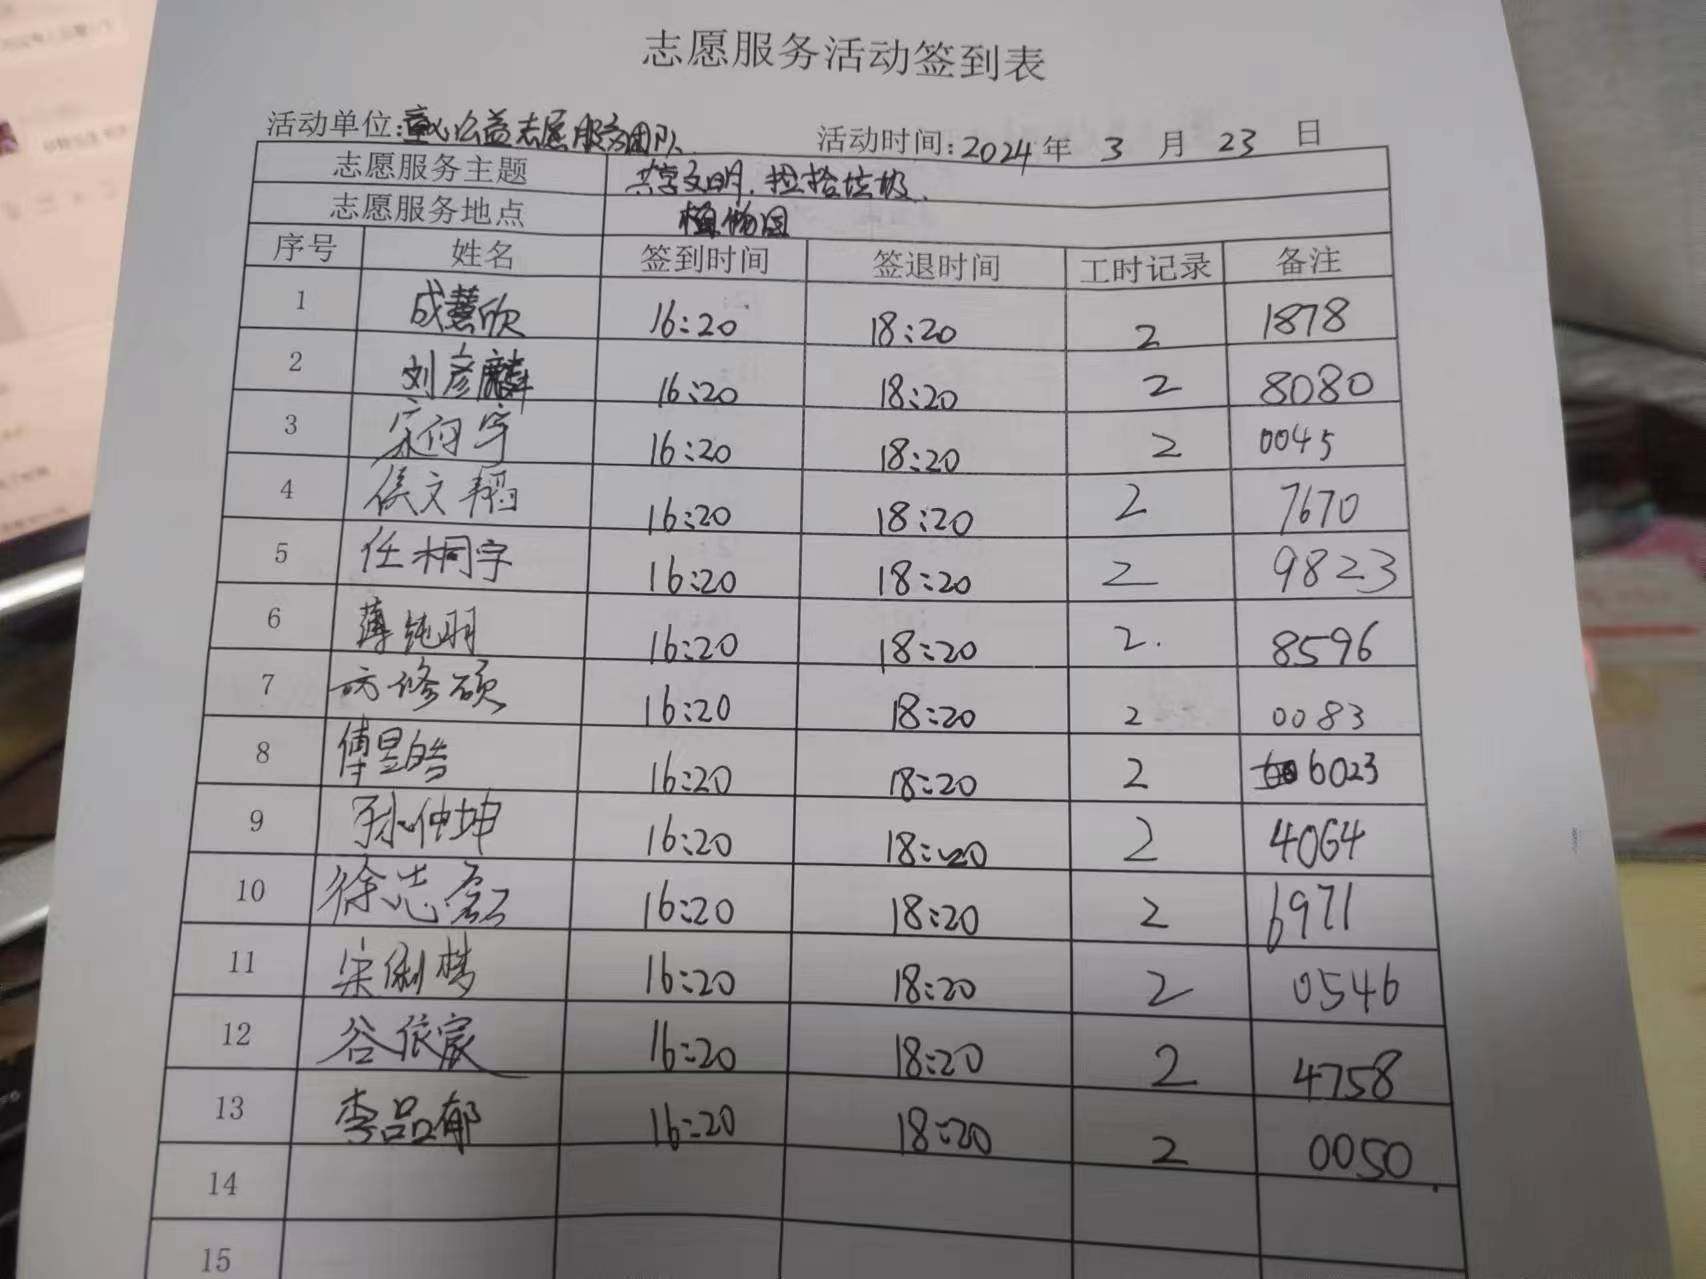 志愿服务活动签到表
活动单位:童心公益志愿服务团队 活动时间:2024年 3 月 23 日
志愿服务主题 共享文明.捡拾垃圾.
志愿服务地点 植物园
序号 姓名 签到时间 签退时间 工时记录 备注
1 成慧欣 16:20 18:20 2 1878
2 刘彦麟 16:20 18:20 2 8080
3 16:20 18:20 2 0045
4 侯文韬 16:20 18:20 2 7670
5 任桐宇 16:20 18:20 2 9823
6 薄纯羽 16:20 18:20 2. 8596
7 修硕 16:20 18:20 2 0083
8 傅昱皓 16:20 18:20 2 6023
9 孙仲坤 16:20 18:20 2 4064
10 徐志磊 16:20 18:20 2 6971
11 宋 梦 16:20 18:20 2 0546
12 谷依宸 16:20 18:20 2 4758
13 李品郁 16:20 18:20 2 0050.
14
15